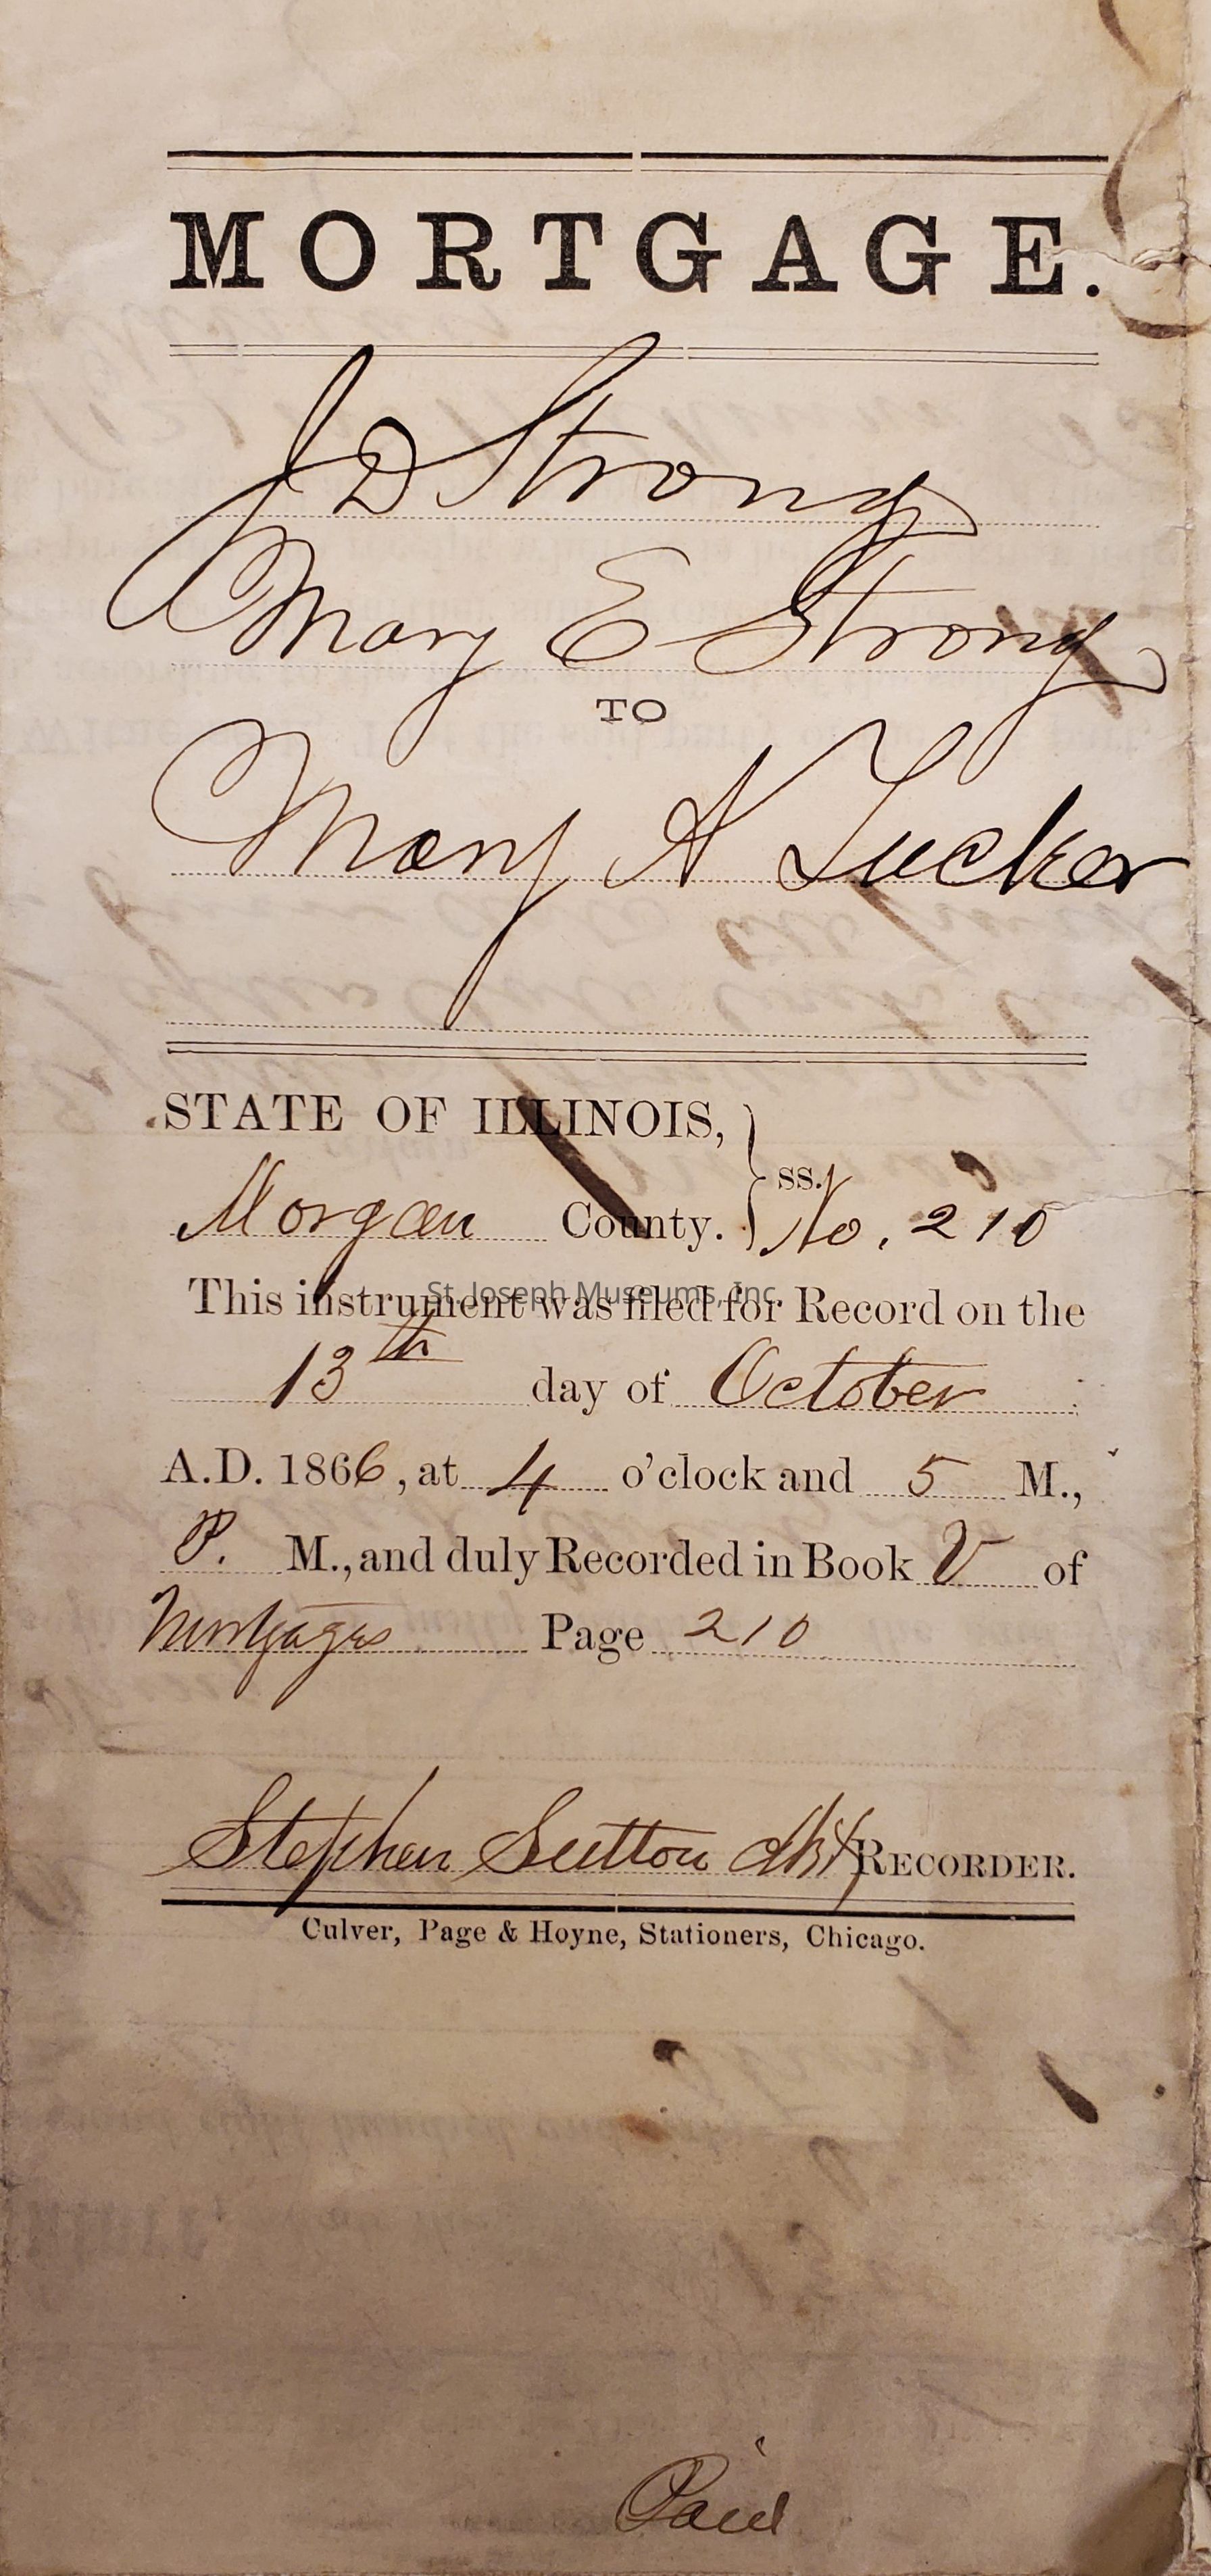 MORTGAGE.
J D Strong
Mary E Strong
TO
Mary A Tucker
STATE OF ILLINOIS,
ss.
Morgan County. No. 210
St. Joseph Museums, Inc.
This instrument was filed for Record on the
13th day of October
A.D. 1866, at 4 o'clock and 5 M.,
P. M., and duly Recorded in Book V of
Mortgages Page 210
Stephen Sutton RECORDER.
Culver, Page & Hoyne, Stationers, Chicago.
Paid